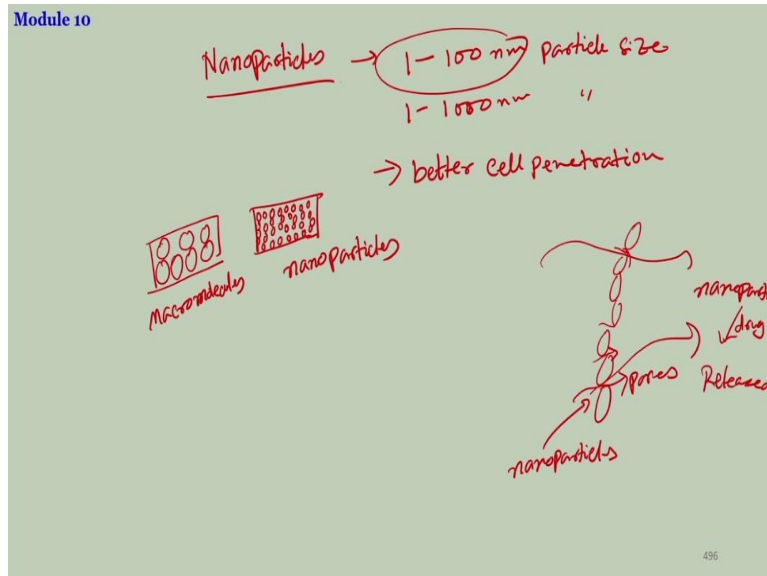 Module 10
Nanoparticles → 1-100 nm particle size
1-1000 nm "
→ better cell penetration
macromolecules
nanoparticles
drug
pores
Released
nanoparticles
496